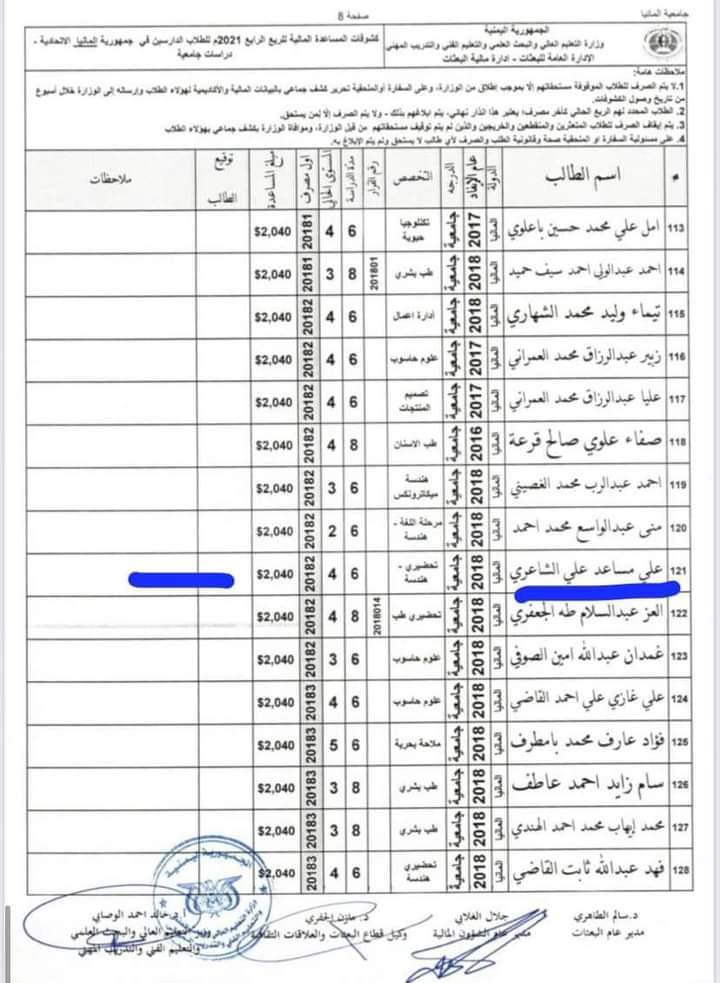 جامعية المانيا
صفحة 8
الجمهورية اليمنية
وزارة التعليم العالي والبحث العلمي والتعليم الفني والتدريب المهني
الإدارة العامة للبعثات - ادارة مالية البعثات
كشوفات المساعدة المالية للربع الرابع 2021م للطلاب الدارسين في جمهورية المانيا الاتحادية - دراسات جامعية
ملاحظات هامة:
1. لا يتم الصرف للطلاب الموقوفة مستحقاتهم إلا بموجب إطلاق من الوزارة، وعلى السفارة أوالملحقية تحرير كشف جماعي بالبيانات المالية والأكاديمية لهؤلاء الطلاب وإرساله إلى الوزارة خلال أسبوع
من تاريخ وصول الكشوفات.
2. الطلاب المحدد لهم الربع الحالي كآخر مصرف؛ يعتبر هذا انذار نهائي، يتم ابلاغهم بذلك - ولا يتم الصرف إلا لمن يستحق.
3. يتم إيقاف الصرف للطلاب المتعثرين والمنقطعين والخريجين والذين لم يتم توقيف مستحقاتهم من قبل الوزارة، وموافاة الوزارة بكشف جماعي بهؤلاء الطلاب
4. على مسئولية السفارة او الملحقية صحة وقانونية الطلب والصرف لأي طالب لا يستحق ولم يتم الإبلاغ به.
# اسم الطالب الدولة عام الإيفاد الدرجه التخصص رقم القرار مدة الدراسة المستوى الحالي اول مصرف مبلغ المساعدة توقيع الطالب ملاحظات
113 امل علي محمد حسين باعلوي المانيا 2017 جامعية تكنلوجيا حيوية 6 4 20181 $2,040
114 احمد عبدالولي احمد سيف حميد المانيا 2018 جامعية طب بشري 201801 8 3 20181 $2,040
115 تيماء وليد محمد الشهاري المانيا 2018 جامعية أدارة اعمال 6 4 20182 $2,040
116 زبير عبدالرزاق محمد العمراني المانيا 2017 جامعية علوم حاسوب 6 4 20182 $2,040
117 عليا عبدالرزاق محمد العمراني المانيا 2017 جامعية تصميم المنتجات 6 4 20182 $2,040
118 صفاء علوي صالح قرعة المانيا 2016 جامعية طب الاسنان 8 4 20182 $2,040
119 احمد عبدالرب محمد الغصيني المانيا 2018 جامعية هندسة ميكاترونكس 6 3 20182 $2,040
120 منى عبدالواسع محمد احمد المانيا 2018 جامعية مرحلة اللغة - هندسة 6 2 20182 $2,040
121 علي مساعد علي الشاعري المانيا 2018 جامعية تحضيري - هندسة 6 4 20182 $2,040
122 العز عبدالسلام طه الجعفري المانيا 2018 جامعية تحضيري طب 2018014 8 4 20182 $2,040
123 غمدان عبدالله امين الصوفي المانيا 2018 جامعية علوم حاسوب 6 3 20182 $2,040
124 علي غازي علي احمد القاضي المانيا 2018 جامعية علوم حاسوب 6 4 20183 $2,040
125 فؤاد عارف محمد بامطرف المانيا 2018 جامعية ملاحة بحرية 6 5 20183 $2,040
126 سام زايد احمد عاطف المانيا 2018 جامعية طب بشري 8 3 20183 $2,040
127 محمد إيهاب محمد احمد الهندي المانيا 2018 جامعية طب بشري 8 3 20183 $2,040
128 فهد عبدالله ثابت القاضي المانيا 2018 جامعية تحضيري هندسة 6 4 20183 $2,040
د.سالم الطاهري جلال الغلابي د. مازن الجفري أ.د.خالد احمد الوصابي
مدير عام البعثات مدير عام الشؤون المالية وكيل قطاع البعثات والعلاقات الثقافية وزير التعليم العالي والبحث العلمي
والتعليم الفني والتدريب المهني
الجمهورية اليمنية